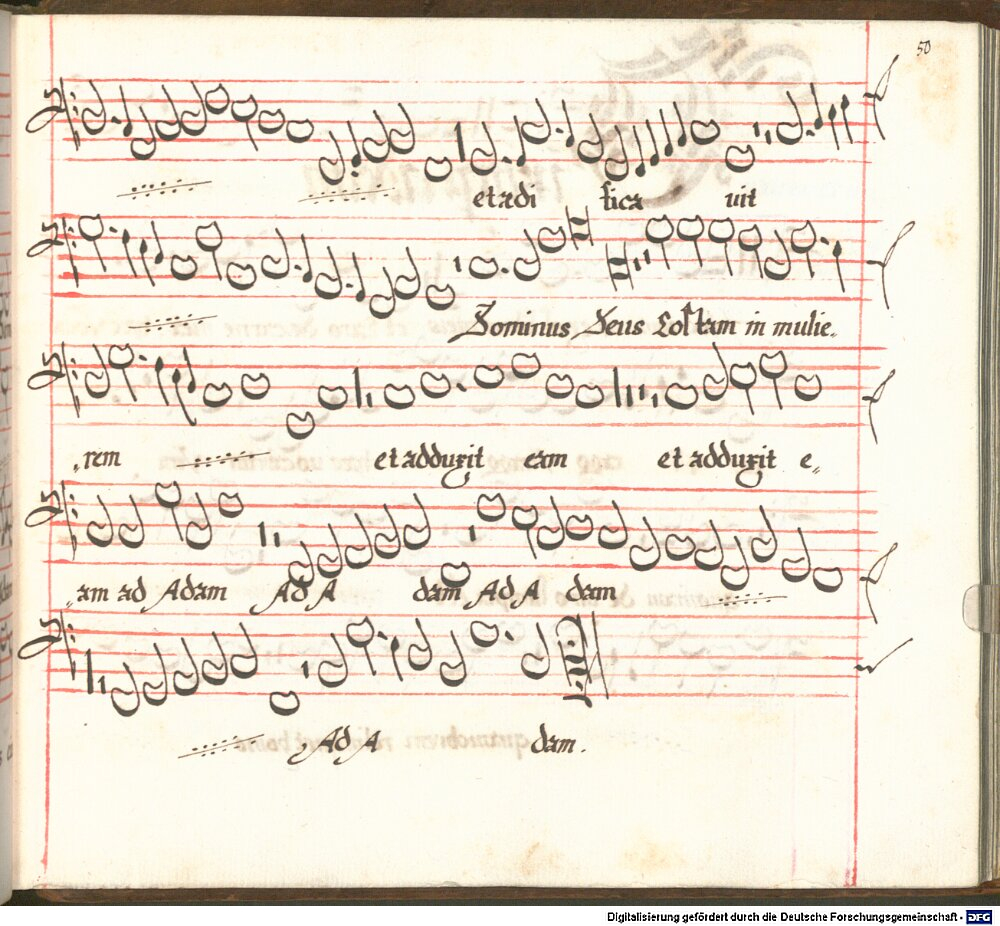 50
et ædi fica uit
Dominus Deus Costam in mulie„
„rem et adduxit eam et adduxit e„
„am ad Adam Ad A dam Ad A dam
Ad A dam.
Digitalisierung gefördert durch die Deutsche Forschungsgemeinschaft - DFG